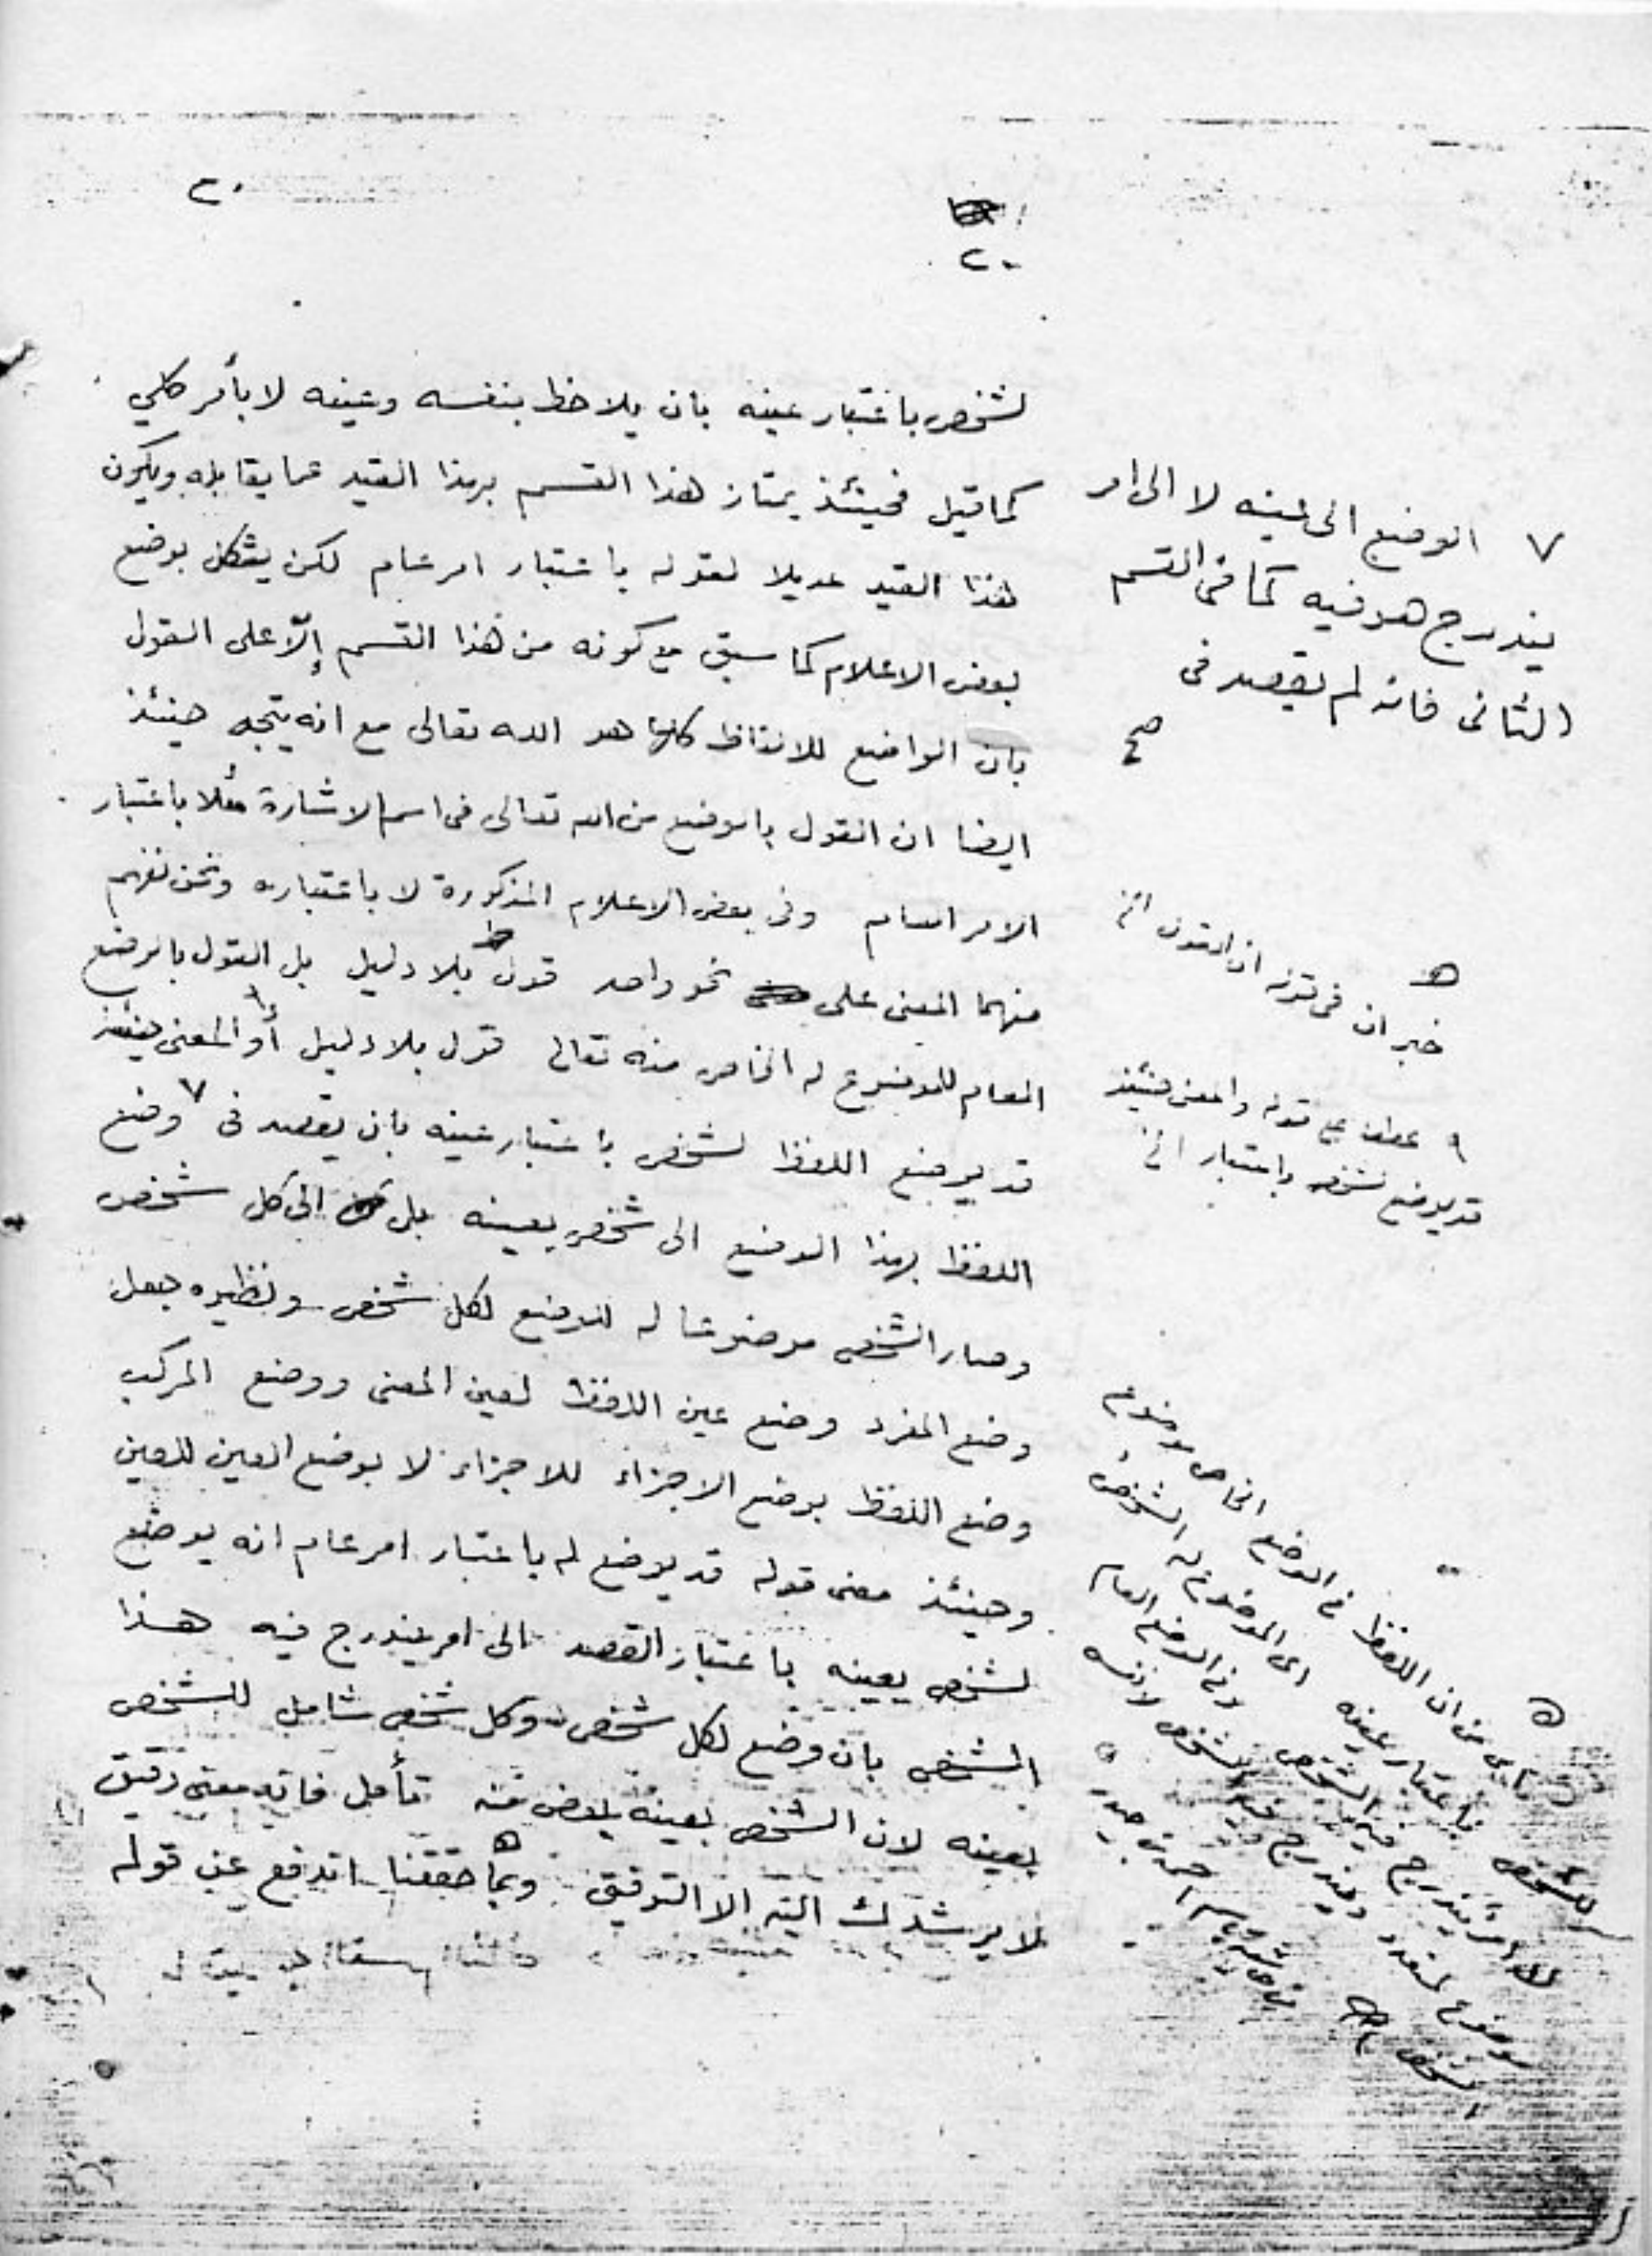 ٢٠
٢٠
لشخص باعتبار عينه بان يلاحظ بنفسه وعينه لا بأمر كلي
كما قيل فحينئذ يمتاز هذا القسم بهذا القيد عما يقابله ويكون
هذا القيد عديلا لقوله باعتبار امر عام لكن يشكل بوضع
بعض الاعلام كما سبق مع كونه من هذا القسم إلّا على القول
بان الواضع للالفاظ كلها هو الله تعالى مع انه يتجه حينئذ
ايضا ان القول بالوضع من الله تعالى في اسم الاشارة مثلا باعتبار
الامر العام وفي بعض الاعلام المذكورة لا باعتباره ونحن نفهم
منهما المعنى على نحو واحد قول بلا دليل بل القول بالوضع
العام للموضوع له الخاص منه تعالى قول بلا دليل أو المعنى حينئذ
قد يوضع اللفظ لشخص باعتبار عينه بان يقصد في ٧ وضع
اللفظ بهذا الوضع الى شخص بعينه بل الى كل شخص
وصار الشخص موضوعا له للوضع لكل شخص ونظيره جعل
وضع المفرد وضع عين اللفظ لعين المعنى ووضع المركب
وضع اللفظ بوضع الاجزاء للاجزاء لا بوضع العين للعين
وحينئذ معنى قوله قد يوضع له باعتبار امر عام انه يوضع
لشخص بعينه باعتبار القصد الى امر يندرج فيه هذا
المشخص بان وضع لكل شخص وكل شخص شامل للشخص
بعينه لان الشخص بعينه بعض منه تأمل فانه معنى دقيق
لا يرشدك اليه الا التوفيق وبما حققنا اندفع عن قوله
٧ الوضع الى عينه لا الى امر
يندرج هو فيه كما في القسم
الثاني فانه لم يقصد في
صح
خبر ان في قوله ان القول الخ
٩ عطف على قوله والمعنى حينئذ
قد يوضع لشخص باعتبار الخ
من ان اللفظ في الوضع الخاص موضوع
للشخص باعتبار عينه اى الموضوع له الشخص
يندرج فيه الشخص وفي الوضع العام
موضوع لمتعدد ويندرج فيه الشخص لا نفسه
الشخص